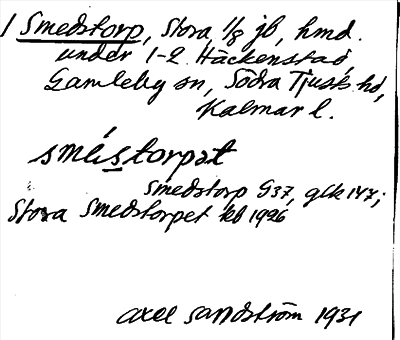 1 Smedstorp, Stora 1/8 jb, hmd.
under 1-2 Häckenstad
Gamleby sn, Södra Tjusts hd,
Kalmar l.
smé̀storpat
Smedstorp G37, glk 147;
Stora Smedstorpet kb 1926
Axel Sandström 1931